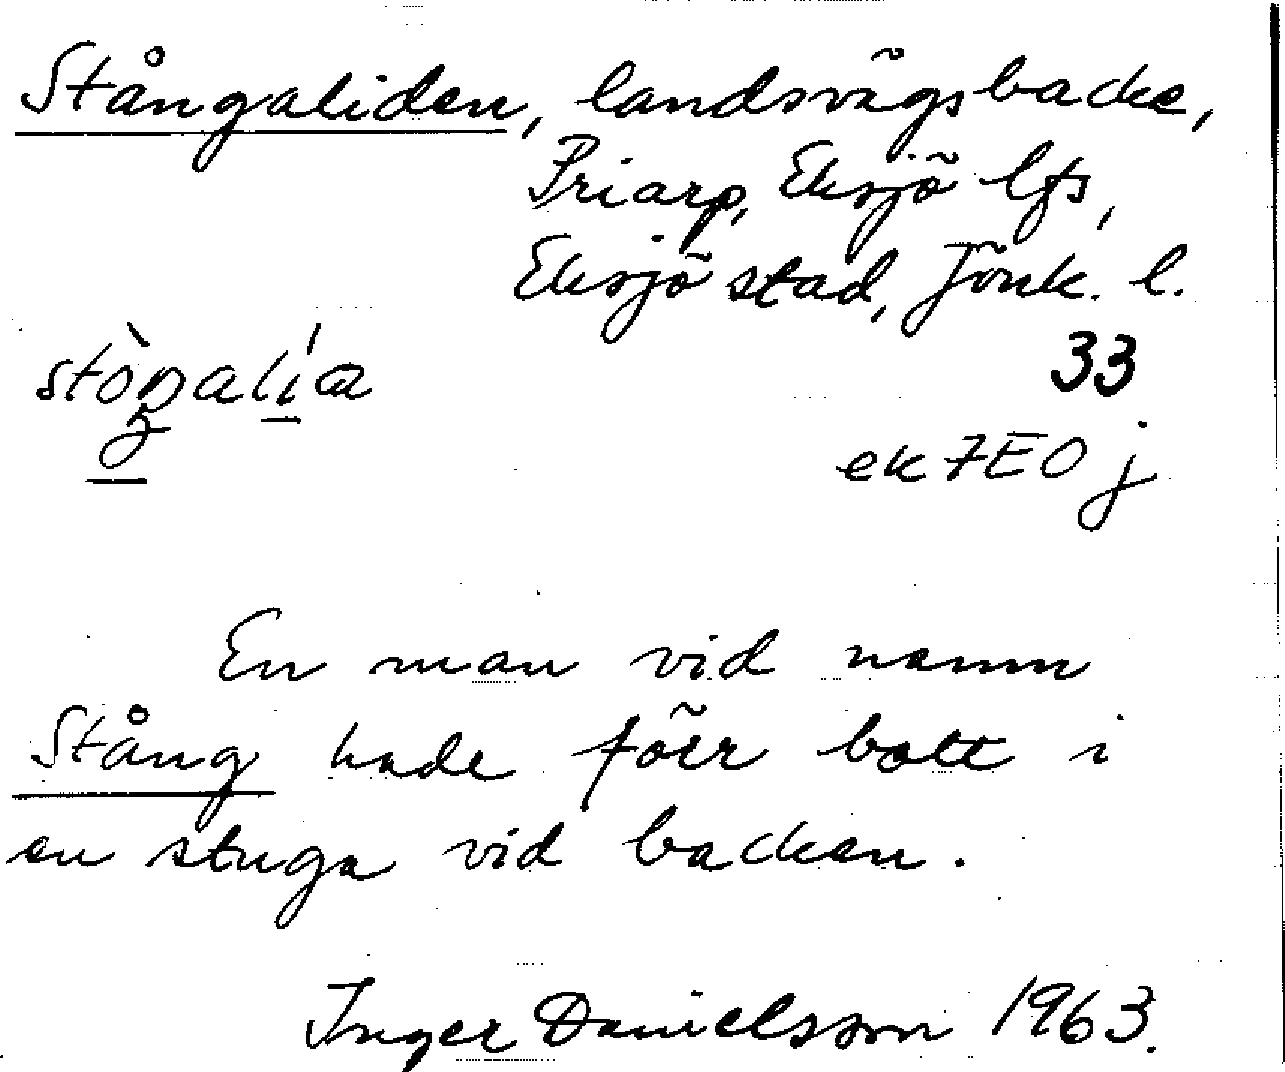 Stångaliden, landsvägsbacke,
Priarp, Eksjö lfs,
Eksjö stad, Jönk. l.
33
ek 7E0 j
En man vid namn
Stång hade förr bott i
en stuga vid backen.
Inger Danielsson 1963.